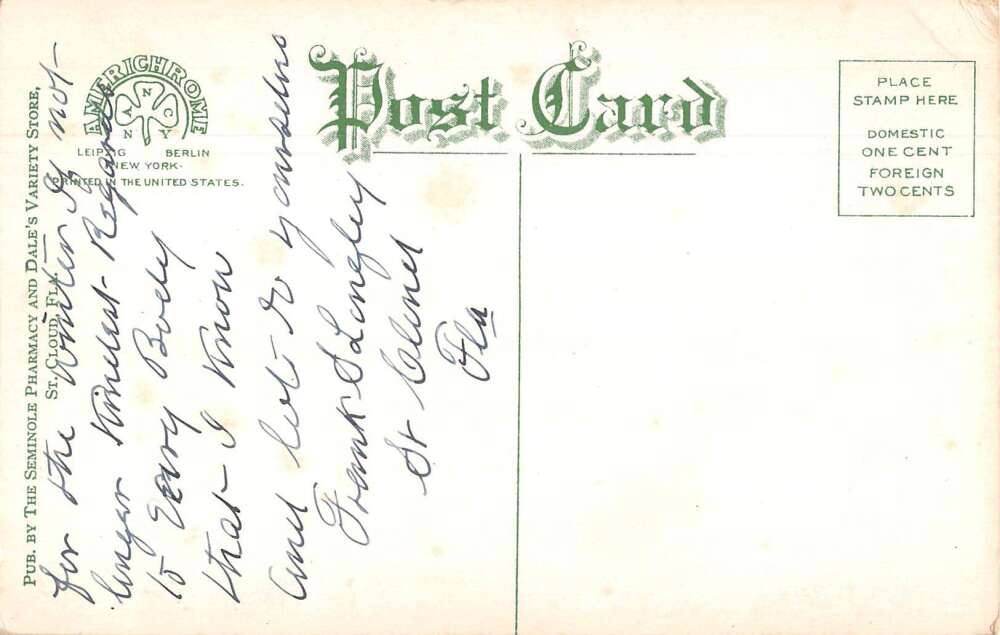 Post Card
AMERICHROME
ANCONY
LEIPZIG BERLIN
NEW YORK
PRINTED IN THE UNITED STATES.
PLACE
STAMP HERE
DOMESTIC
ONE CENT
FOREIGN
TWO CENTS
PUB. BY THE SEMINOLE PHARMACY AND DALE'S VARIETY STORE,
ST. CLOUD, FLA.
for the Winter If not
longer Kindest Regards
to Every Body
that I Know
and lots to yourselves
Frank S Langley
St Cloud
Fla